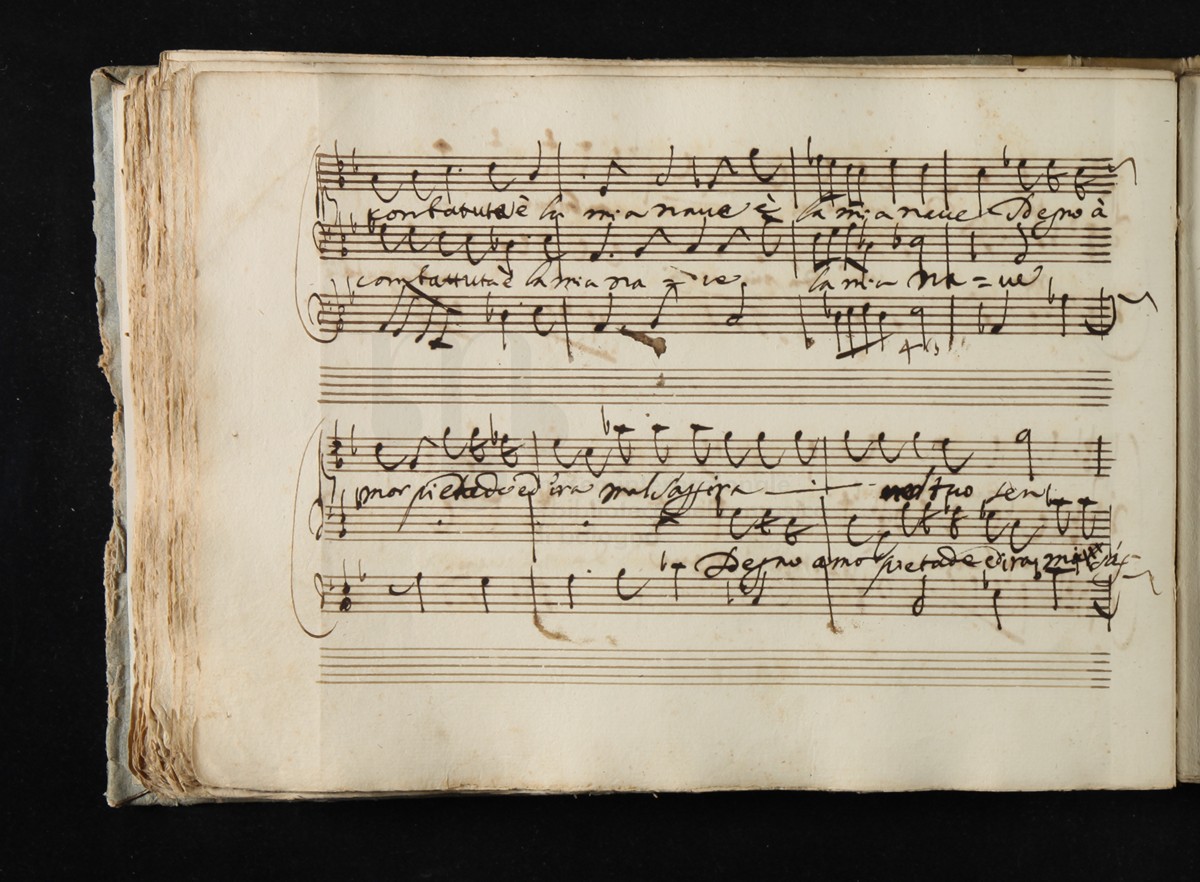 combatuta è la mia naue è la mia naue Sdegno à
combattuta è la mia na = ue la mia na = ue
4
mor pietade ed ira mal s'aggira nel tuo sen
Sdegno amor pietade ed ira mal s'ag